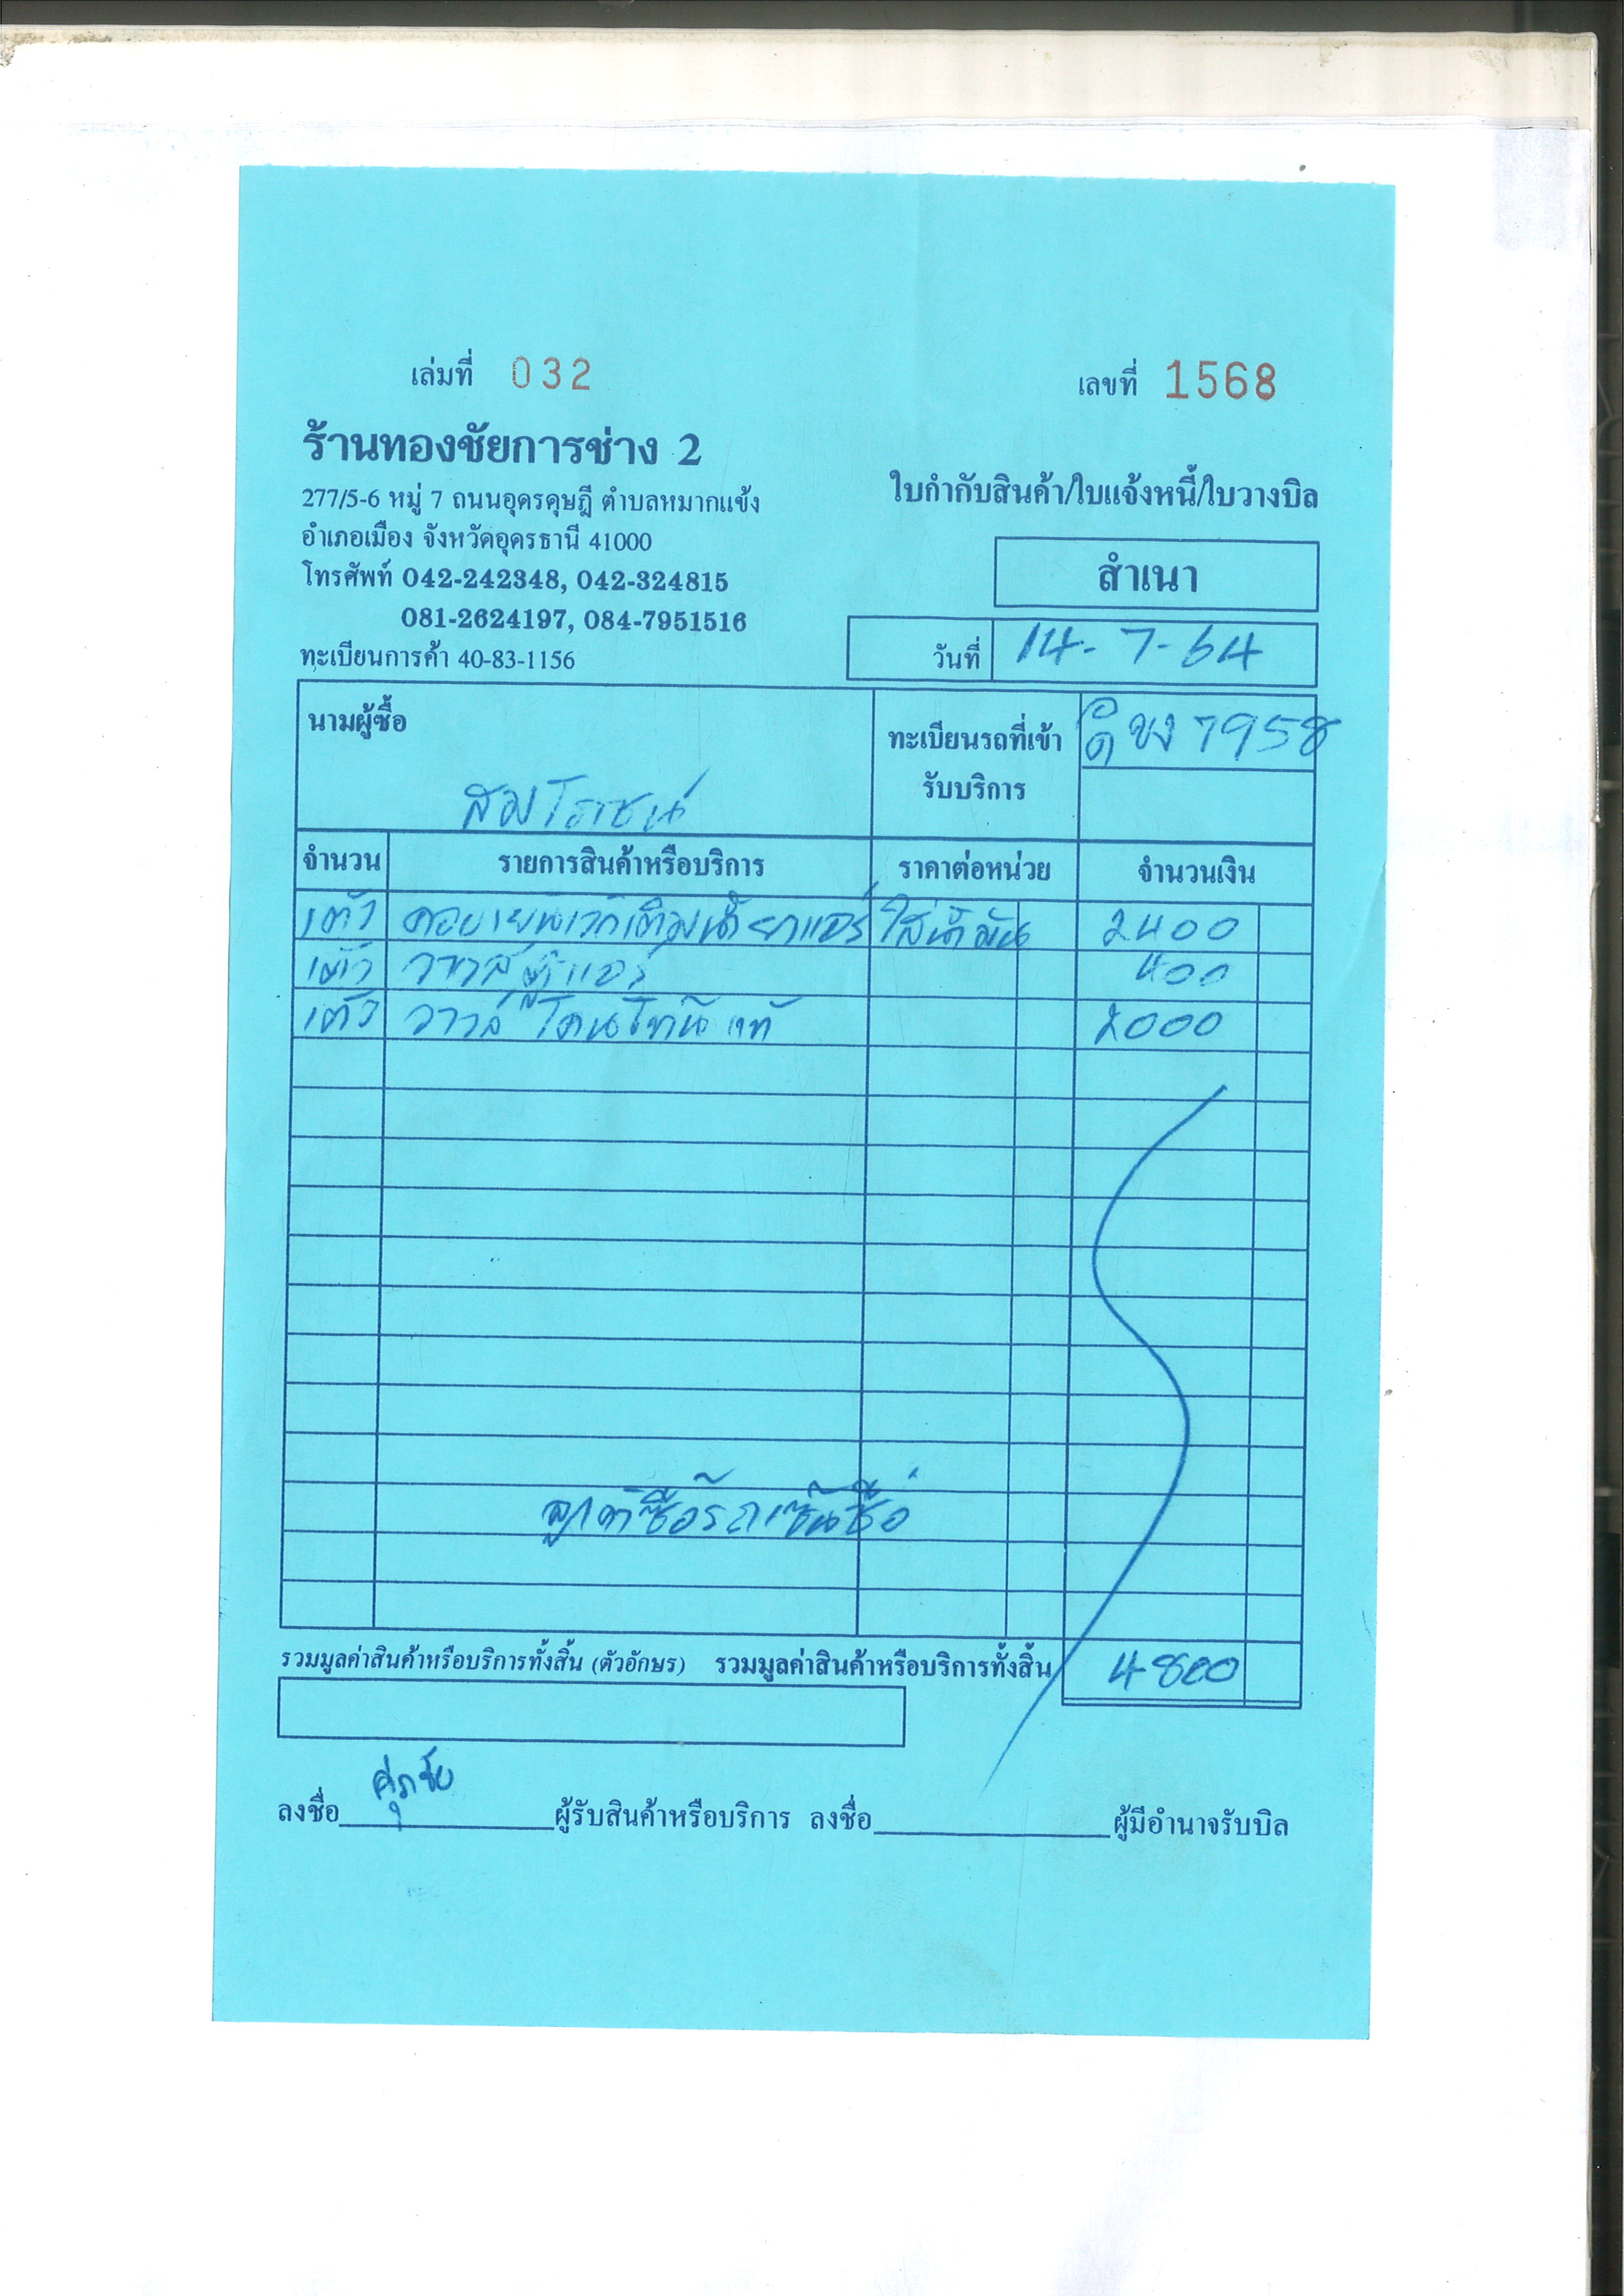 เล่มที่ 032
เลขที่ 1568
ร้านทองชัยการช่าง 2
277/5-6 หมู่ 7 ถนนอุดรดุษฎี ตำบลหมากแข้ง
อำเภอเมือง จังหวัดอุดรธานี 41000
โทรศัพท์ 042-242348, 042-324815
081-2624197, 084-7951516
ทะเบียนการค้า 40-83-1156
ใบกำกับสินค้า/ใบแจ้งหนี้/ใบวางบิล
สำเนา
วันที่ 14-7-64
นามผู้ซื้อ
สมโรชน์
ทะเบียนรถที่เข้า
รับบริการ
ขง 7958
จำนวน รายการสินค้าหรือบริการ ราคาต่อหน่วย จำนวนเงิน
น้ำยาแอร์ ใส่น้ำมัน 2400
แอร์ 400
วาล์ว แท้ 2000
ลูกค้าซื้อรถเซ็นชื่อ
รวมมูลค่าสินค้าหรือบริการทั้งสิ้น (ตัวอักษร) รวมมูลค่าสินค้าหรือบริการทั้งสิ้น 4800
ศุภชัย
ลงชื่อ ผู้รับสินค้าหรือบริการ ลงชื่อ ผู้มีอำนาจรับบิล